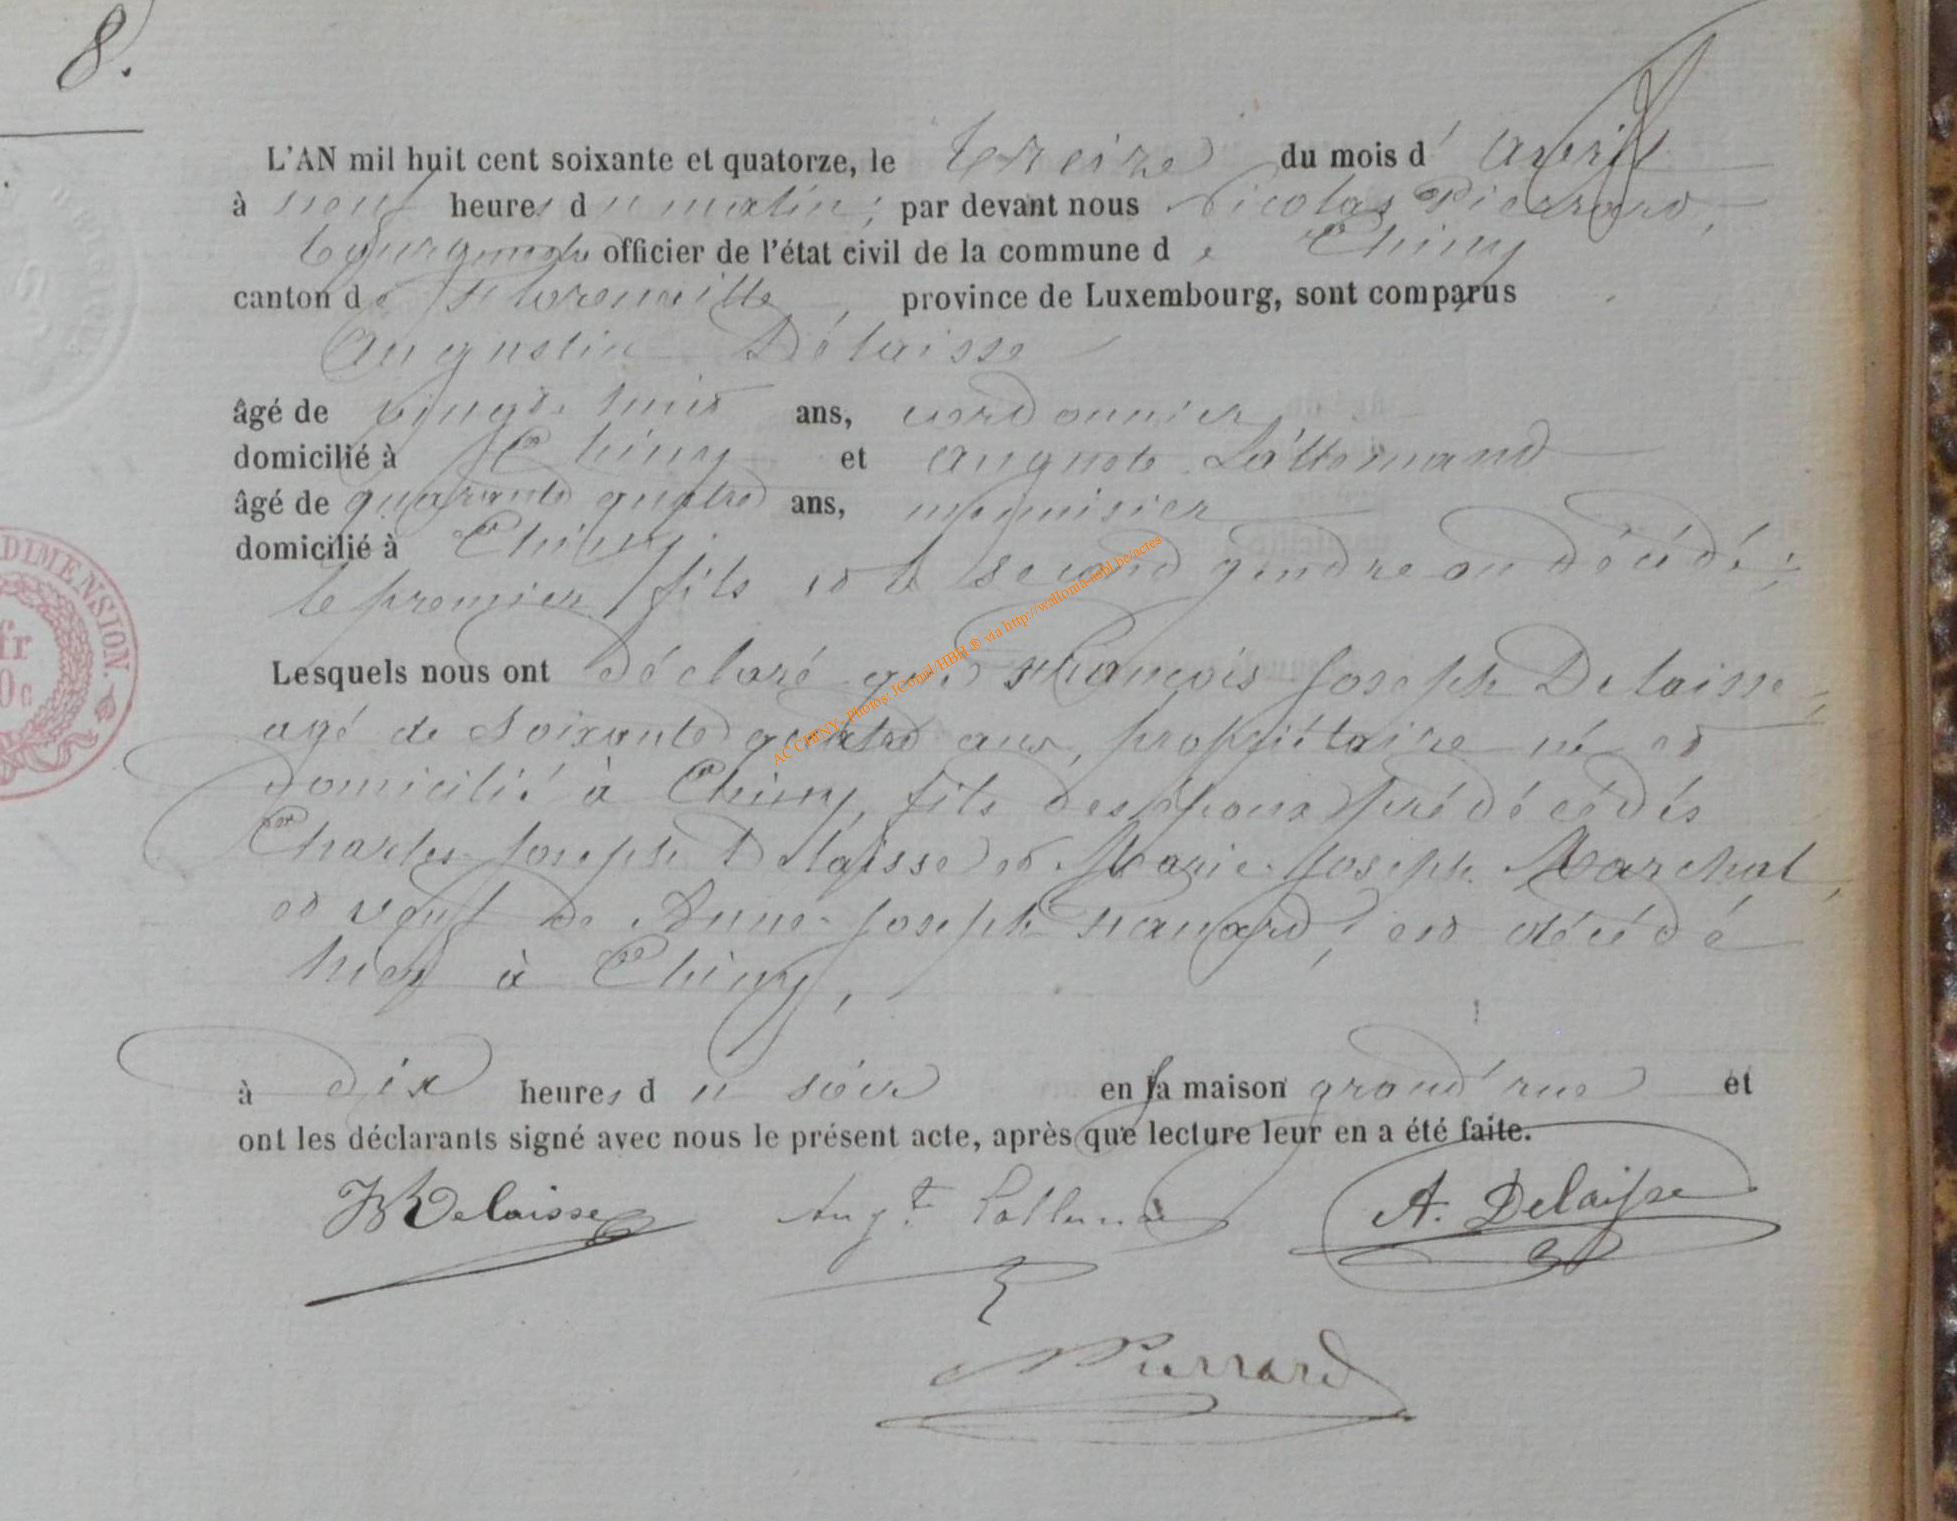 8.
L'AN mil huit cent soixante et quatorze, le treize du mois d'avril
à neuf heures du matin, par devant nous Nicolas Pierrard,
bourgmestre officier de l'état civil de la commune de Chiny
canton de Florenville, province de Luxembourg, sont comparus
Augustin Delaisse
âgé de vingt huit ans, cordonnier
domicilié à Chiny et Auguste Lallemand
âgé de quarante quatre ans, menuisier
domicilié à Chiny,
le premier fils et le second gendre au décédé;
Lesquels nous ont déclaré que François Joseph Delaisse,
agé de soixante quatre ans, propriétaire né et
domicilié à Chiny, fils des époux prédécédés
Charles Joseph Delaisse et Marie Joseph Marchal,
et veuf de Anne Joseph Hanard, est décédé
hier à Chiny,
à dix heures du soir en sa maison grand'rue et
ont les déclarants signé avec nous le présent acte, après que lecture leur en a été faite.
Delaisse Augt. Lallemand A. Delaisse
Pierrard
DIMENSION.
fr
0c
AC CHINY - Photos: JConil/HBH ® via http://wallonia-nobl.be/actes